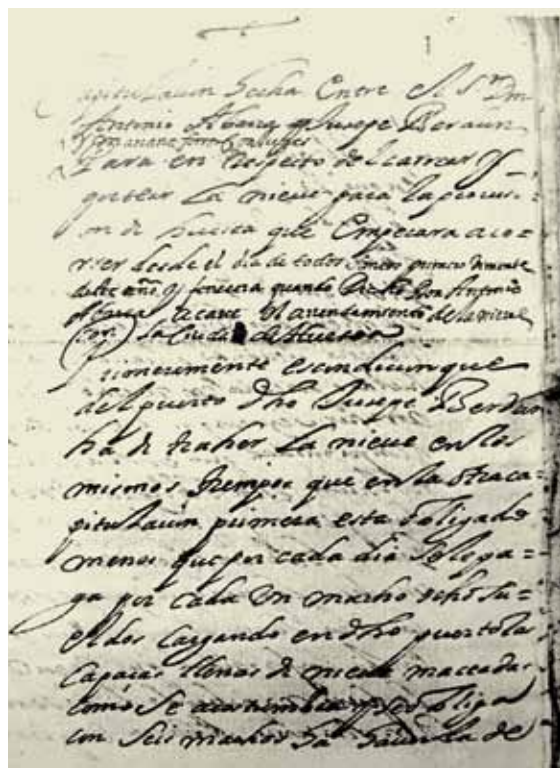 Capitulacion hecha Entre el Sr Dn
Antonio Abarca y Jusepe Berdun
y Mariana
Para en respeto del carriar y
gotear La nieve para la provisi=
on de huesca que Empeçara a co=
rrer desde el dia de todos Santos primero viniente
deste año y fenecera quando Dicho Don Antonio
Abarca acave el arrendamiento de la nieve
con la Ciudad de Huesca
Primeramente es condicion que
del puerto dho Jusepe Berdun
ha de traher La nieve en los
mismos tiempos que en la otra ca=
pitulacion primera esta obligado
menos que por cada dia solo pa=
ga por cada Un macho ocho su=
eldos Cargando en dho puerto las
capaças llenas de nieve maceada
como se acostumbra y se obliga
con seis machos ha de